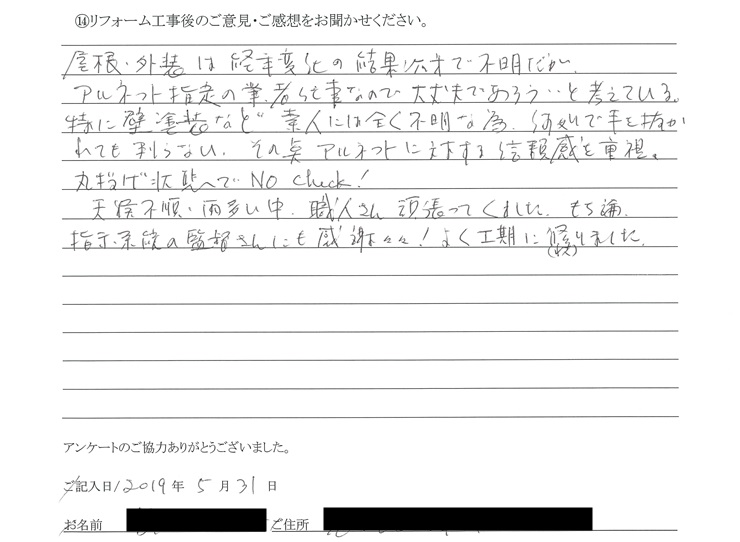 ⑭リフォーム工事後のご意見・ご感想をお聞かせください。
屋根・外装は経年変化の結果次第で不明だが、
アルネット指定の業者仕事なので大丈夫であろう‥と考えている。
特に壁塗装など素人には全く不明な為、何処で手を抜か
れても判らない。その点アルネットに対する信頼感を重視。
丸投げ状態でNO check!
天候不順・雨多い中、職人さん頑張ってくれました。もち論、
指示系統の監督さんにも感謝々々!よく工期に終りました。
アンケートのご協力ありがとうございました。
ご記入日/2019年5月31日
お名前 ご住所